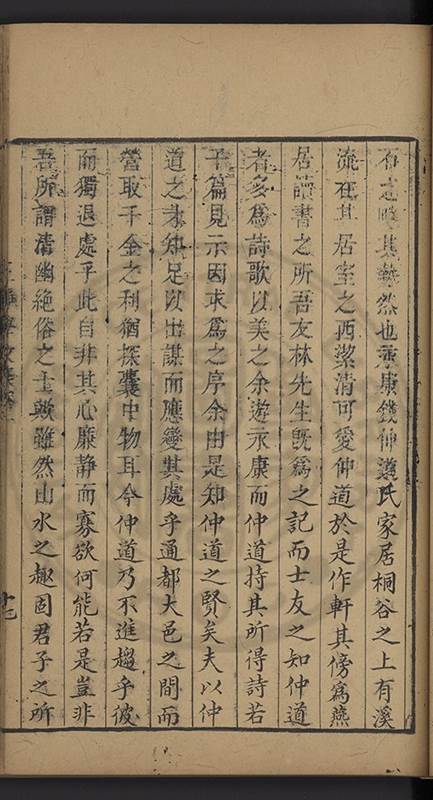 其 然也永康錢仲道氏家居桐谷之上有溪
流在其居室之西潔清可愛仲道於是作軒其傍爲燕
居讀書之所吾友林先生既爲之記而士友之知仲道
者多爲詩歌以美之余遊永康而仲道持其所得詩若
干篇見示因求爲之序余由是知仲道之賢矣夫以仲
道之才知足以出謀而應變其處乎通都大邑之間而
營取千金之利猶探囊中物耳今仲道乃不進趨乎彼
而獨退處乎此自非其心廉静而寡欲何能若是豈非
吾所謂清幽絶俗之士歟雖然山水之趣固君子之所